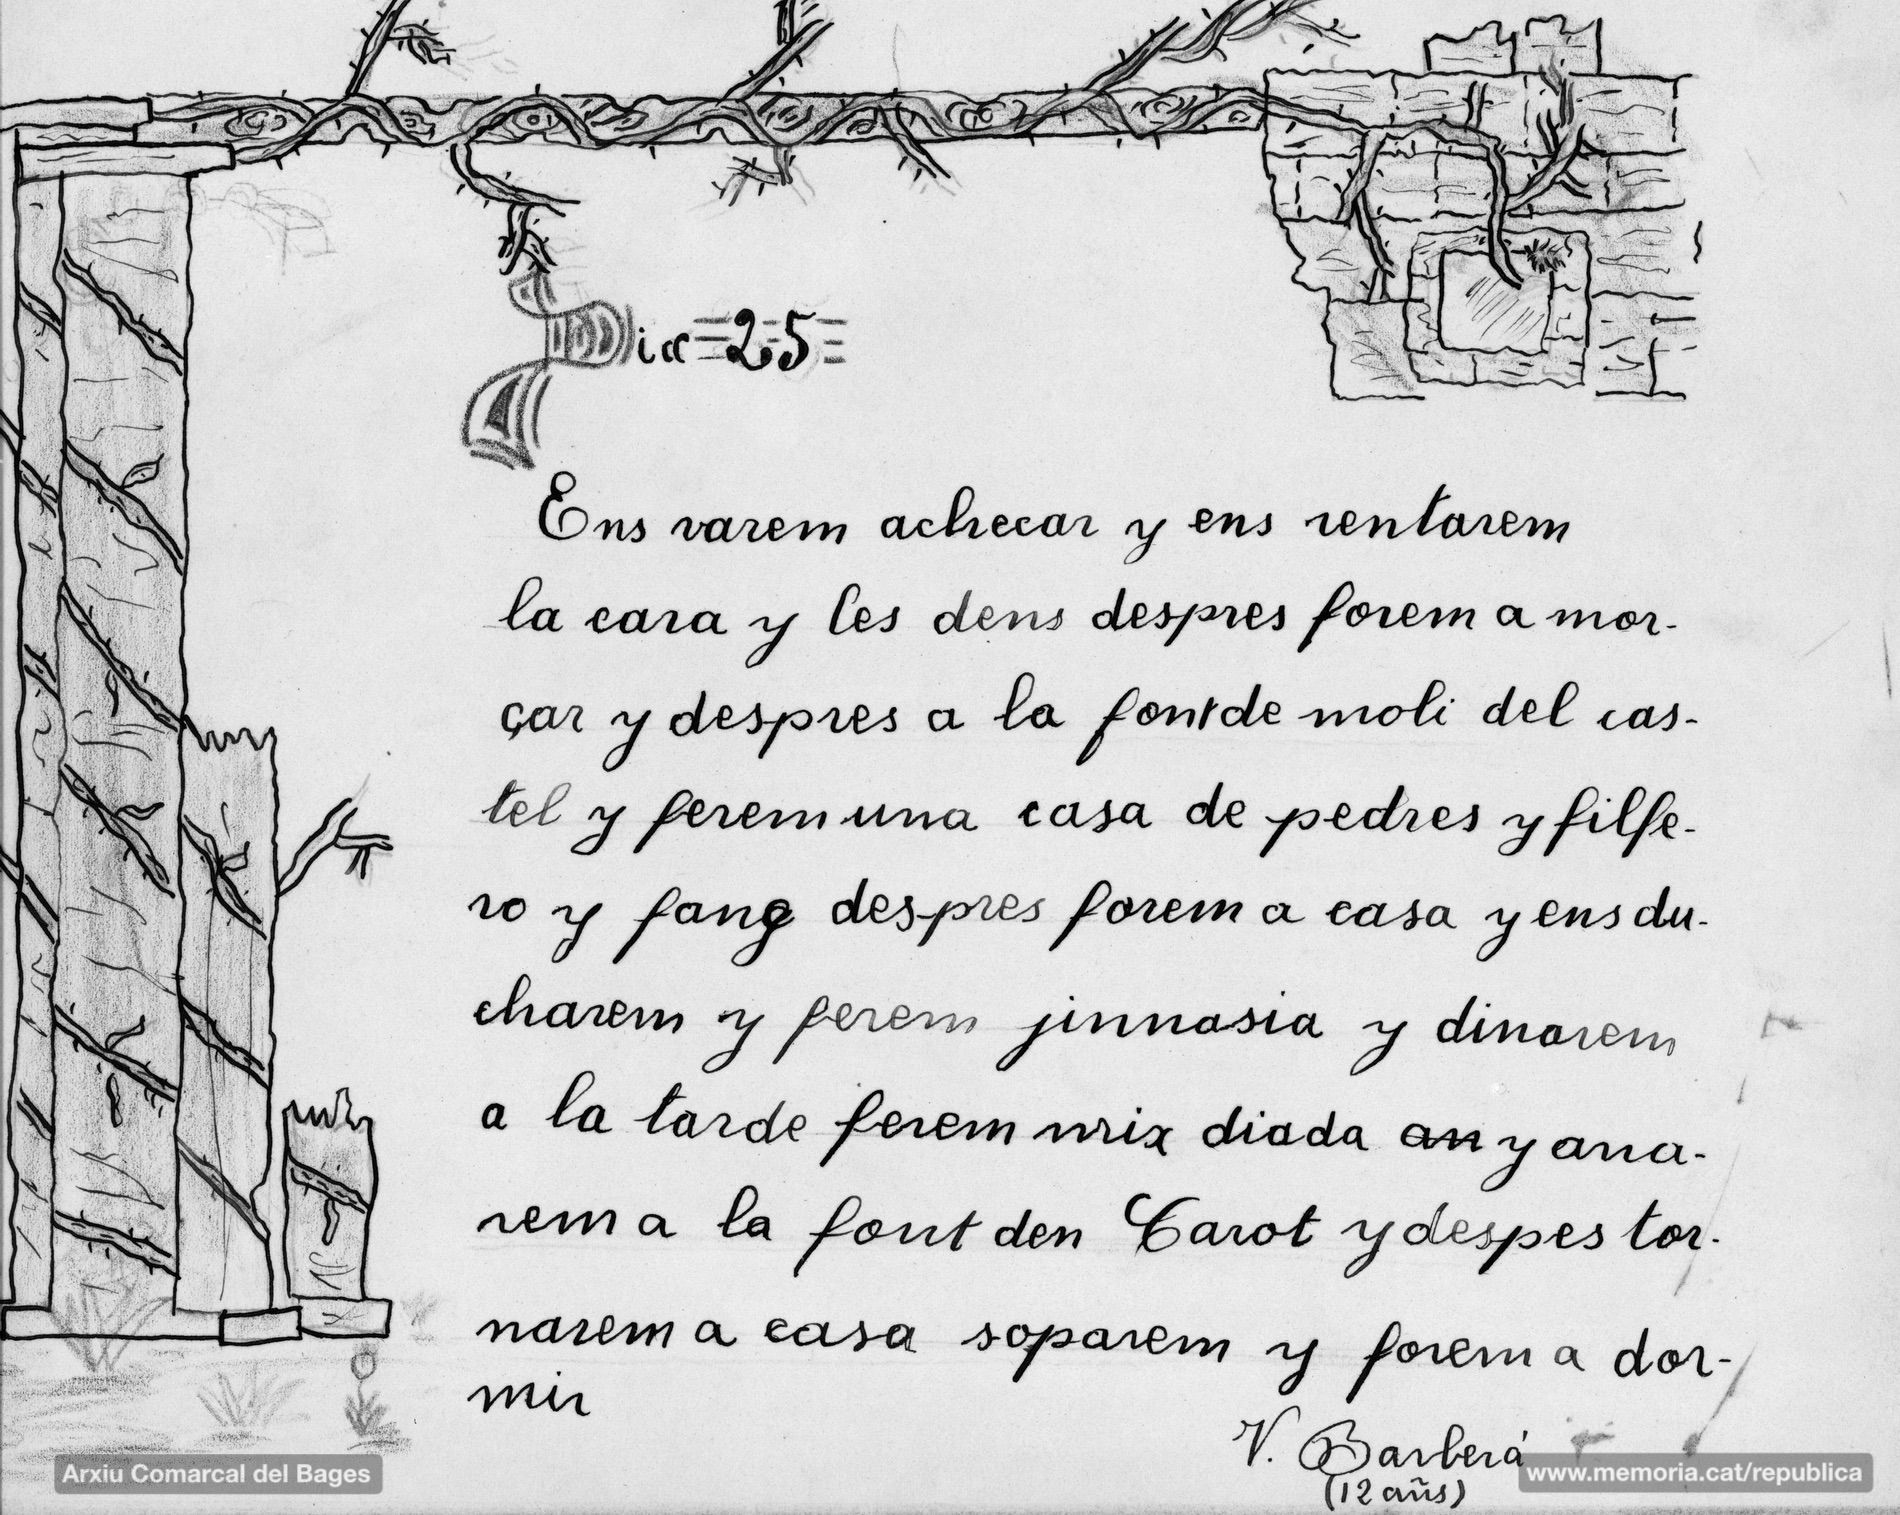 Dia = 25 =
Ens varem achecar y ens rentarem
la cara y les dens despres forem a mor-
çar y despres a la font de moli del cas-
tel y ferem una casa de pedres y filfe-
ro y fang despres forem a casa y ens du-
charem y ferem jinnasia y dinarem
a la tarde ferem mix diada an y ana-
rem a la font den Carot y despes tor-
narem a casa soparem y forem a dor-
mir
V. Barberá
(12 añs)
Arxiu Comarcal del Bages
www.memoria.cat/republica